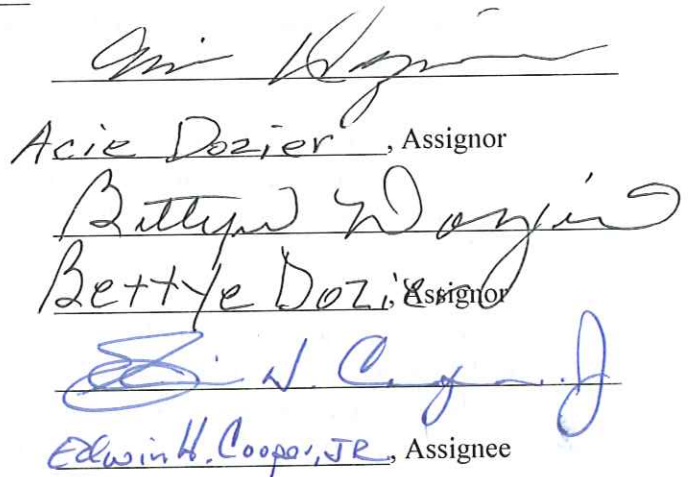 Acie Dozier, Assignor
Bettye Dozier
Bettye Dozier, Assignor
Edwin H. Cooper, JR, Assignee